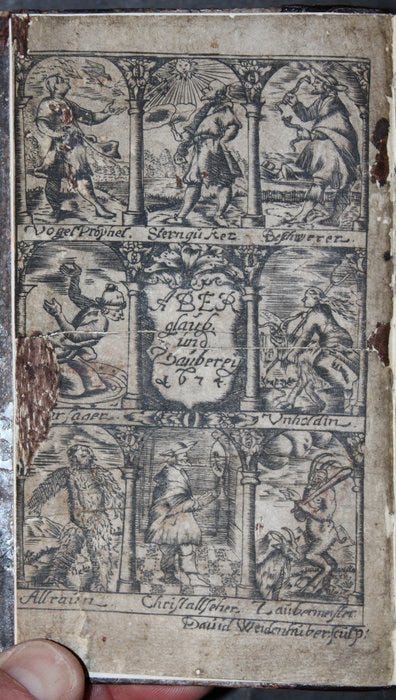 Vogel Prophet. Sterngucker Beschwerer
ABER
glaub.
und
Zauberey
1674
sager Unholdin
Allraun Christallseher Zaubermeister
David Weidenhuber sculp: